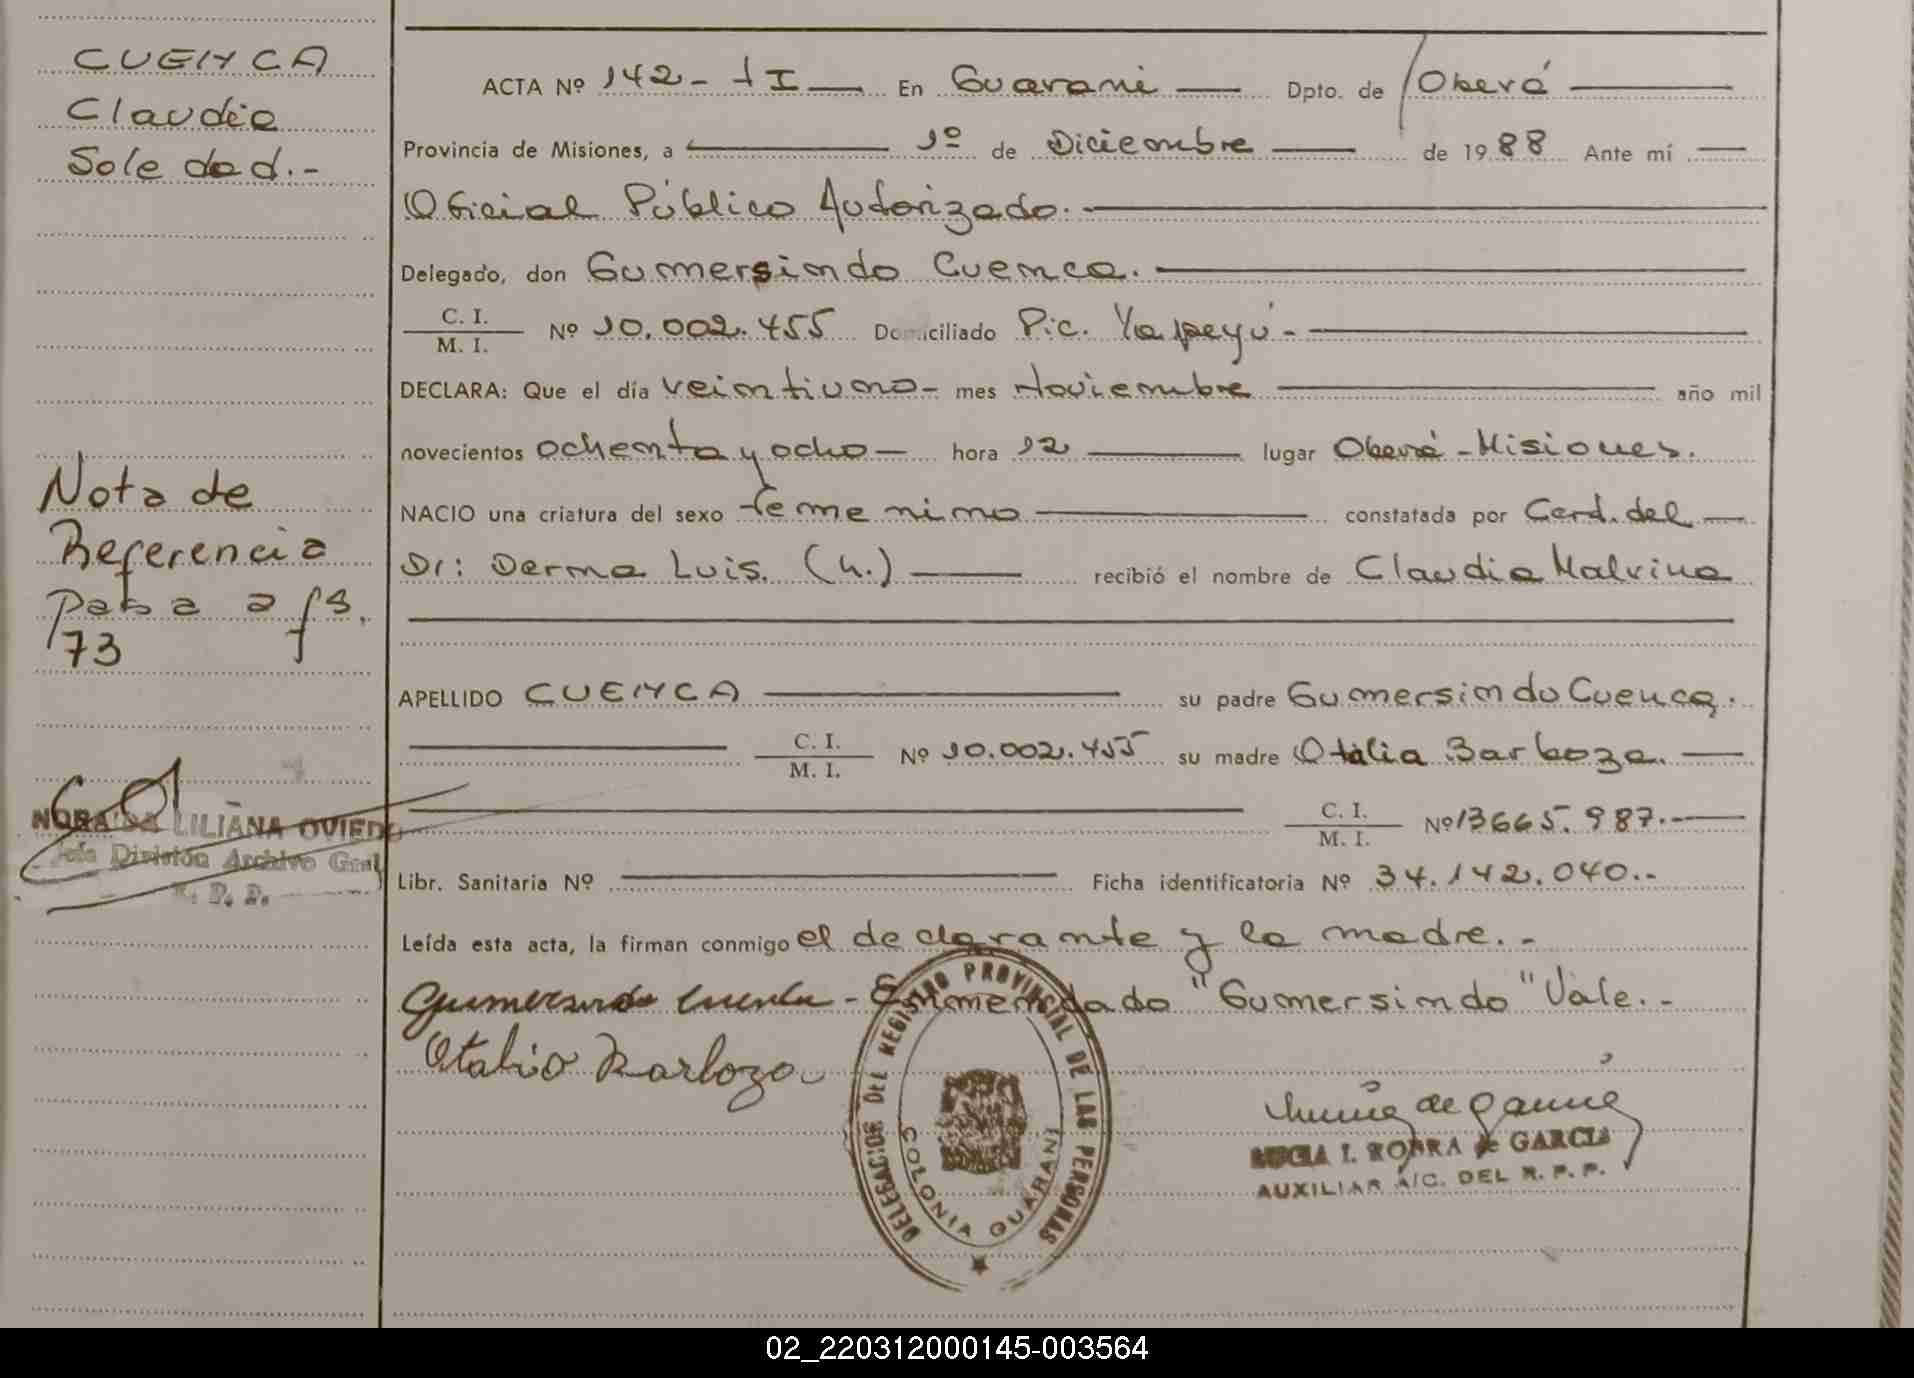 CUENCA
Claudia
Soledad.-
Nota de
Referencia
Pasa a fs.
73
NORA LILIANA OVIEDO
Jefe División Archivo Gral
R. P. P.
ACTA Nº 142 - tI En Guarani Dpto. de Oberá
Provincia de Misiones, a 1º de Diciembre de 1988 Ante mí
Oficial Público Autorizado.
Delegado, don Gumersindo Cuenca.
C. I.
M. I.
Nº 10.002.455 Domiciliado Pic. Yapeyú -
DECLARA: Que el día veintiuno- mes Noviembre año mil
novecientos ochenta y ocho- hora 12 lugar Oberá - Misiones.
NACIO una criatura del sexo femenino constatada por Cerd. del
Dr: Derma Luis. (h.) recibió el nombre de Claudia Malvina
APELLIDO CUENCA su padre Gumersindo Cuenca.
C. I.
M. I.
Nº 10.002.455 su madre Otalia Barboza.
C. I.
M. I.
Nº 13665.987.-
Libr. Sanitaria Nº Ficha identificatoria Nº 34.142.040.-
Leída esta acta, la firman conmigo el declarante y la madre.-
Gumersindo Cuenca - Enmendado "Gumersindo" Vale.-
Otalia Barboza
DELEGACION DEL REGISTRO PROVINCIAL DE LAS PERSONAS
COLONIA GUARANI
LUCIA I. ROBRA de GARCIA
AUXILIAR A/C. DEL R. P. P.
02_220312000145-003564